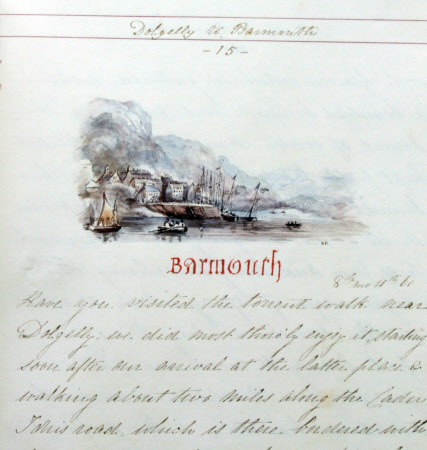 Dolgelly & Barmouth
- 15 -
Barmouth
8th mo 11th 60
Have you visited the torrent walk near
Dolgelly; we did most thoroly enjoy it, starting
soon after our arrival at the latter place &
walking about two miles along the Cader
Idris road, which is there bordered with